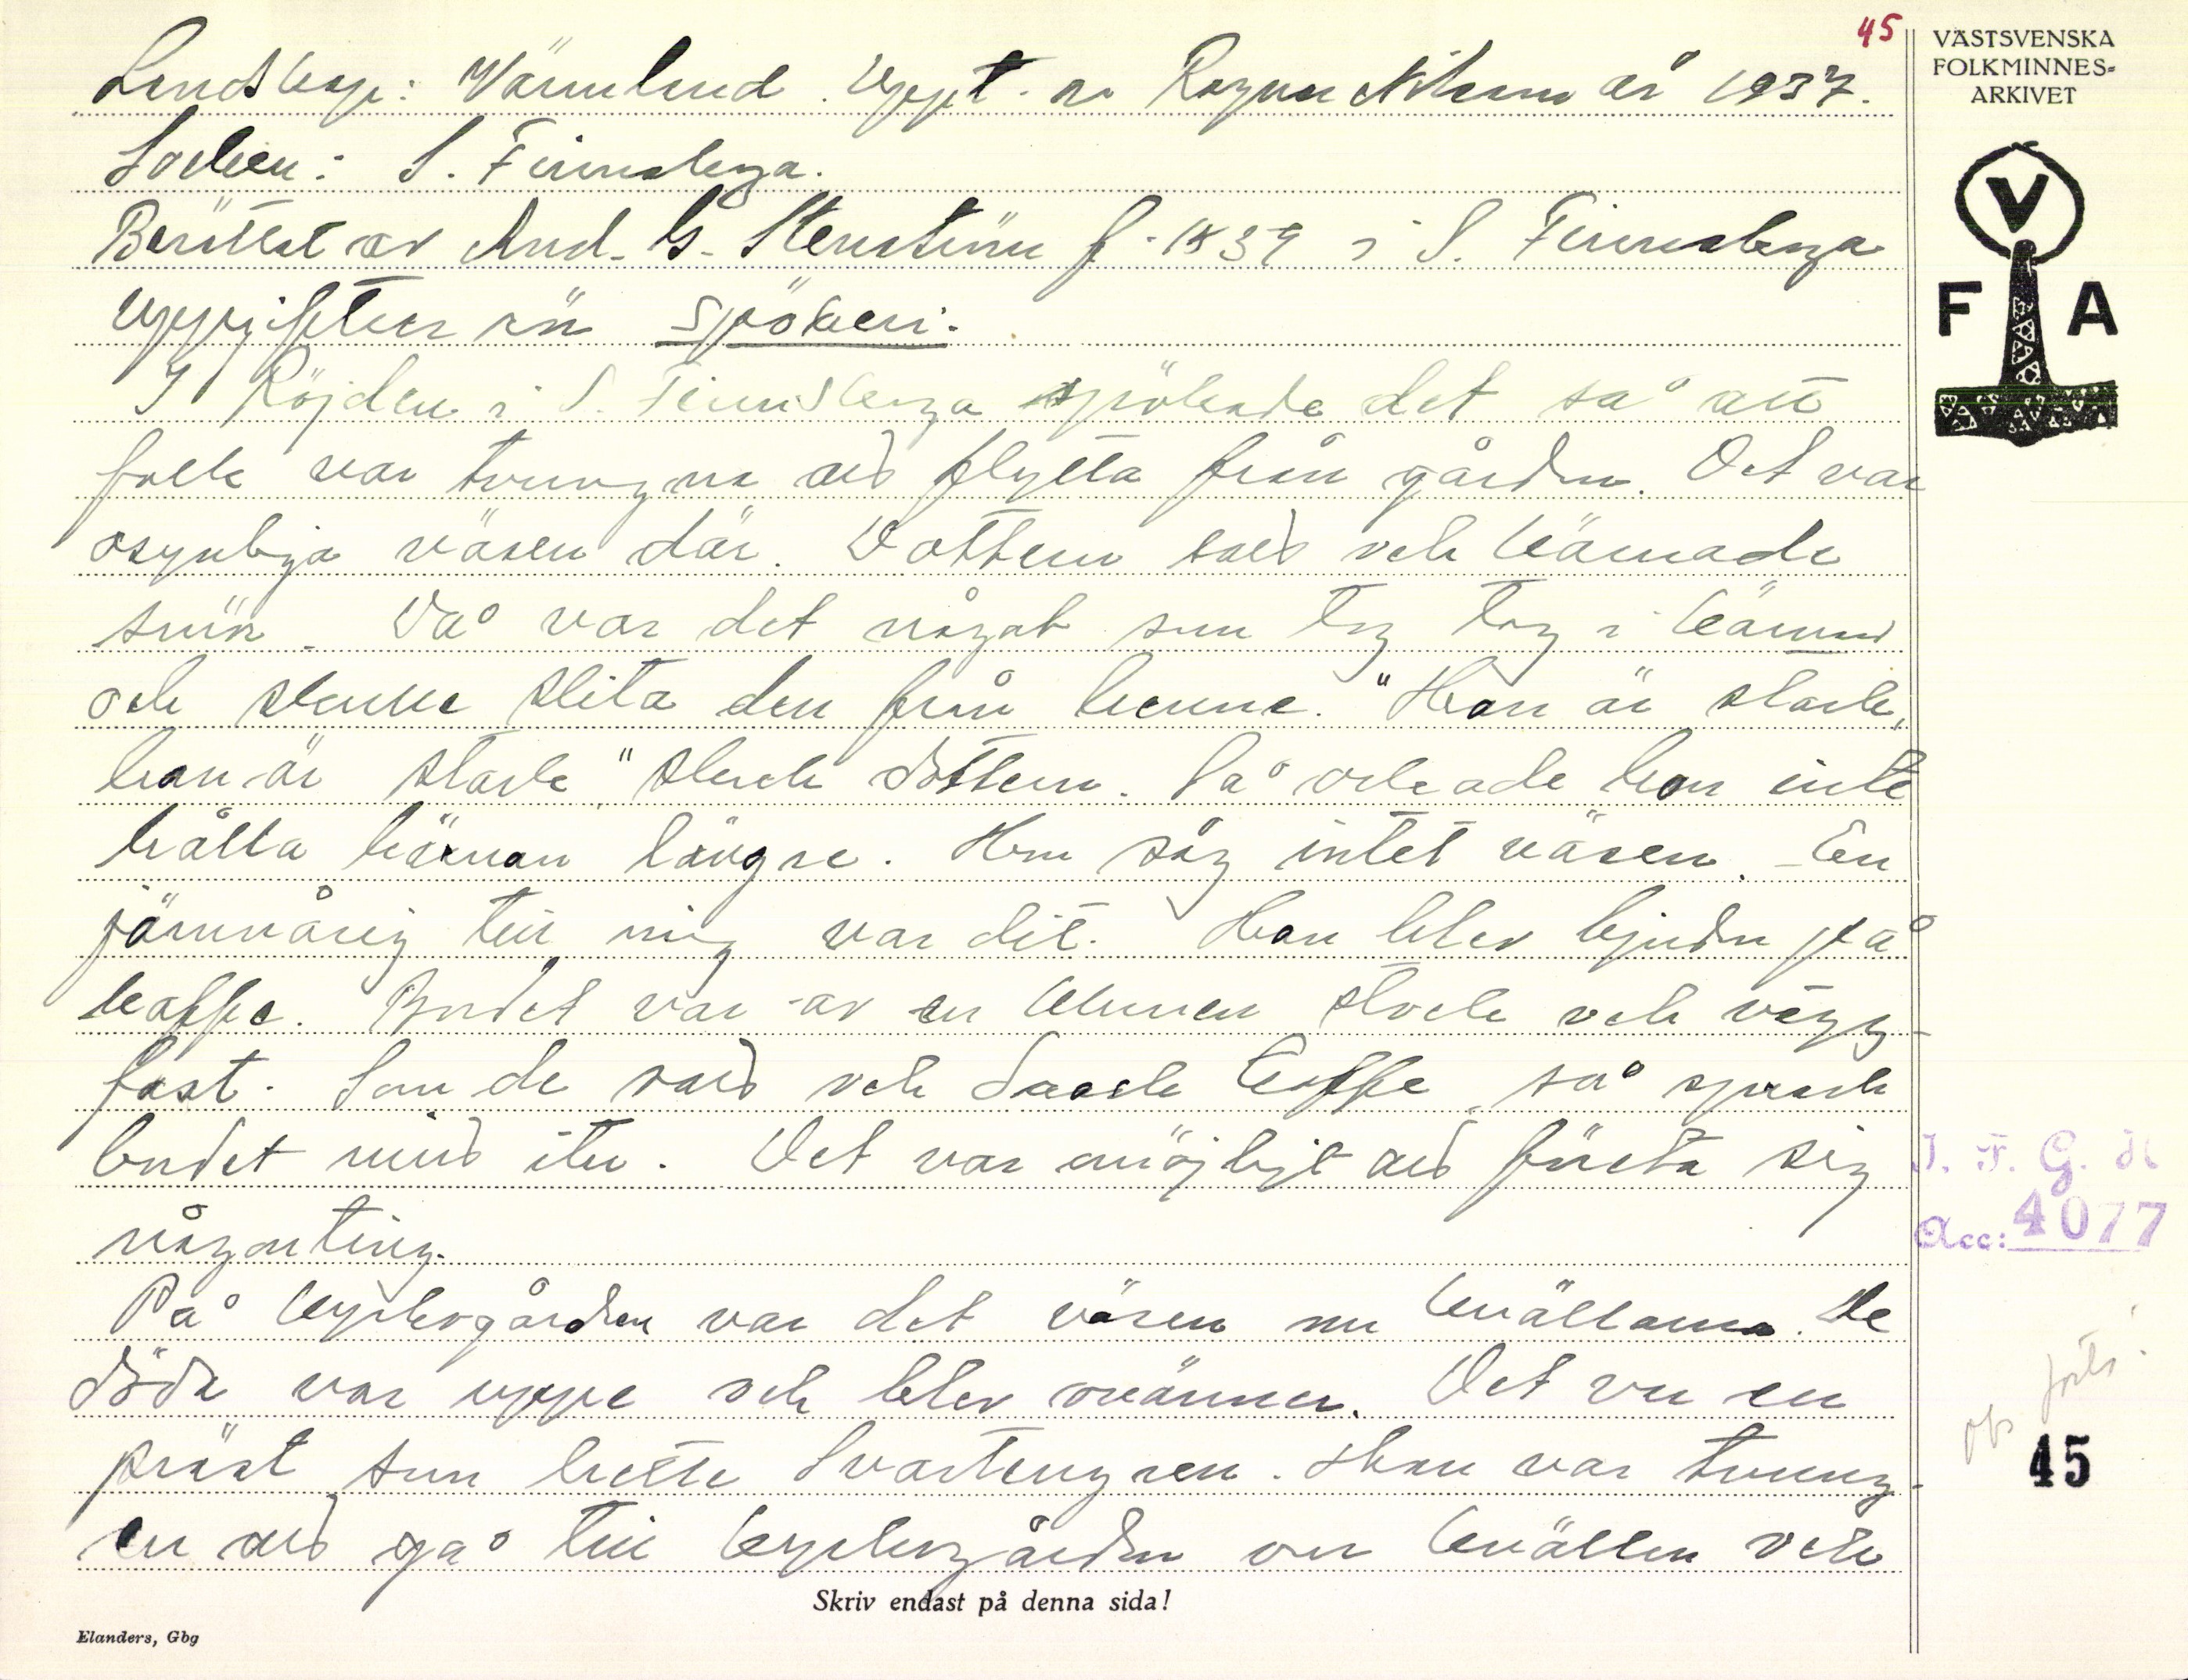 45
VÄSTSVENSKA
FOLKMINNES-
ARKIVET
V
F A
Landskap: Värmland. Uppt. av Ragnar Nilsson år 1937.
Socken: S. Finnskoga.
Berättat av And. G. Stenström f. 1839 i S. Finnskoga
Uppgifter om spökeri.
I Röjden i S. Finnskoga spökade det så att
folk var tvungna att flytta från gården. Det var
osynliga väsen där. Dottern satt och kärnade
smör. Då var det något som tog tag i kärnan
och skulle slita den från henne. "Han är stark,
han är stark" skrek dottern. Så orkade hon inte
hålla kärnan längre. Hon såg intet väsen. En
jämnårig till mig var dit. Han blev bjuden på
kaffe. Bordet var av en kluven stock och vägg-
fast. Som de satt och drack kaffe, så sprack
bordet mitt itu. Det var omöjligt att förstå sig
någonting.
På kyrkogården var det väsen om kvällarna. De
döda var uppe och blev ovänner. Det var en
präst som hette Svartengren. Han var tvung-
en att gå till kyrkogården om kvällen och
I. F. G. H
Acc: 4077
obs forts.
45
Skriv endast på denna sida!
Elanders, Gbg